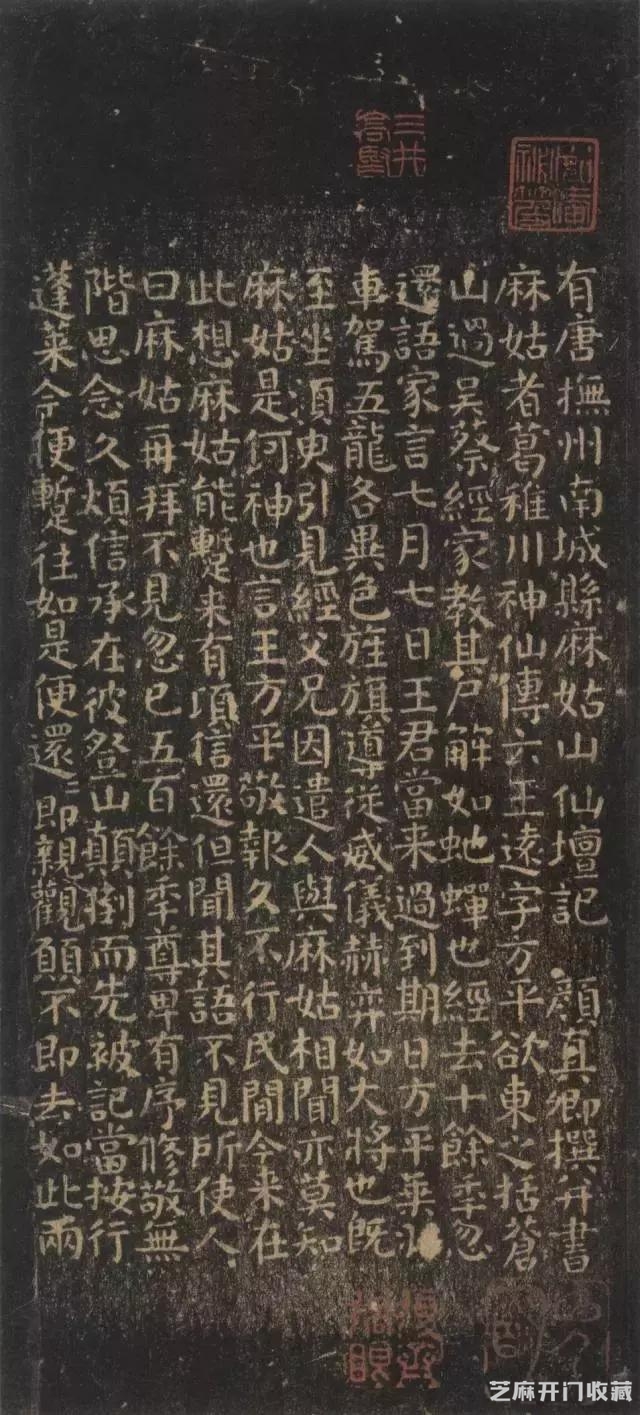 三井高堅
有唐撫州南城縣麻姑山仙壇記 顏真卿撰并書
麻姑者葛稚川神仙傳云王遠字方平欲東之括蒼
山過吳蔡經家教其尸解如虵蟬也經去十餘秊忽
還語家言七月七日王君當来過到期日方平乗
車駕五龍各異色旌旗導従威儀赫弈如大將也既
至坐須臾引見經父兄因遣人與麻姑相聞亦莫知
麻姑是何神也言王方平敬報久不行民間今来在
此想麻姑能蹔来有頃信還但聞其語不見所使人
曰麻姑再拜不見忽已五百餘秊尊卑有序修敬無
階思念久煩信承在彼登山顛倒而先被記當按行
蓬莱今便蹔往如是便還〻即親觀願不即去如此兩
芝麻开门收藏